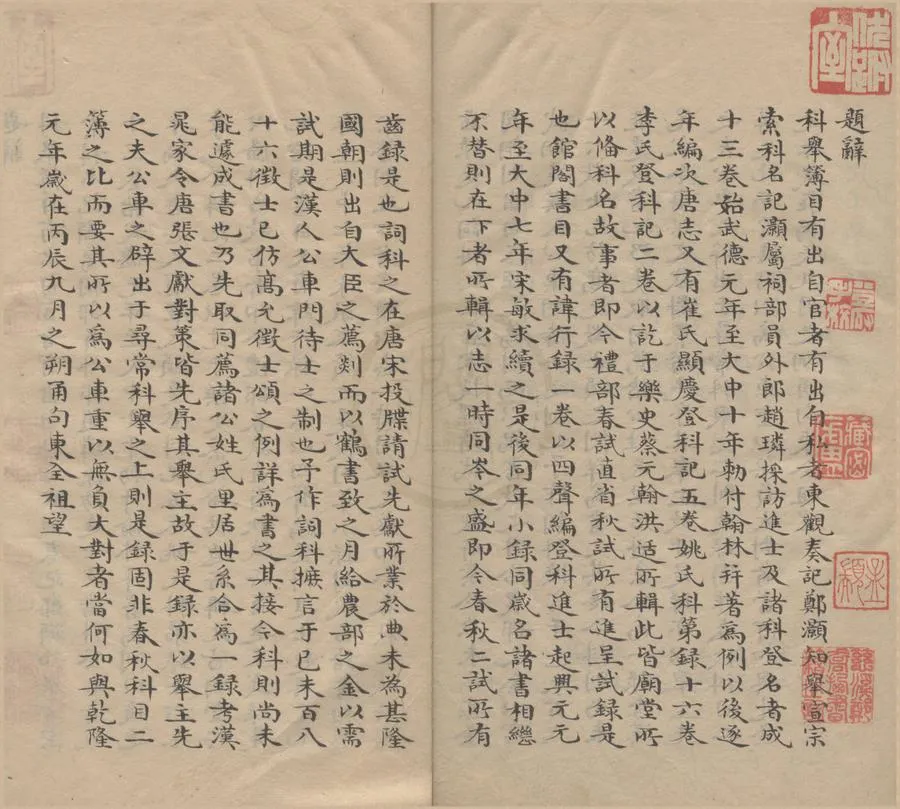 題辭
科舉簿目有出自官者有出自私者東觀奏記鄭灝知舉宣宗
索科名記灝屬祠部員外郎趙璘採訪進士及諸科登名者成
十三卷始武德元年至大中十年勅付翰林幷著爲例以後逐
年編次唐志又有崔氏顯慶登科記五卷姚氏科第錄十六卷
李氏登科記二卷以訖于樂史蔡元翰洪适所輯此皆廟堂所
以脩科名故事者即今禮部春試直省秋試所有進呈試録是
也館閣書目又有諱行録一卷以四聲編登科進士起興元元
年至大中七年宋敏求續之是後同年小録同歲名諸書相繼
不替則在下者所輯以志一時同岑之盛即今春秋二試所有
齒録是也詞科之在唐宋投牒請試先獻所業於典未為甚隆
國朝則出自大臣之薦剡而以鶴書致之月給農部之金以需
試期是漢人公車門待士之制也予作詞科摭言于已未百八
十六徵士已仿髙允徵士頌之例詳為書之其接今科則尚未
能遽成書也乃先取同薦諸公姓氏里居世系合為一録考漢
晁家令唐張文獻對策皆先序其舉主故于是録亦以舉主先
之夫公車之辟出于尋常科舉之上則是録固非春秋科目二
簿之比而要其所以爲公車重以無負大對者當何如與乾隆
元年歲在丙辰九月之朔甬句東全祖望